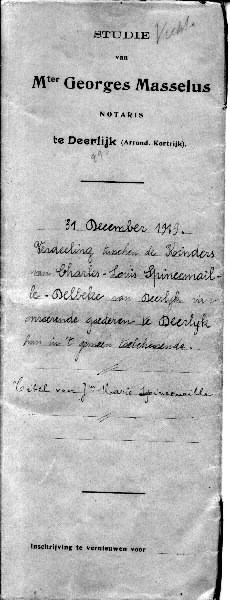 Vichte
STUDIE
van
Mter Georges Masselus
NOTARIS
te Deerlijk (Arrond. Kortrijk).
31 December 1919.
Verdeeling tusschen de Kinders
van Charles-Louis Spincemail-
le-Delbeke van Deerlijk in
onroerende goederen te Deerlijk
hun in 't gemeen toebehoorende.
Titel van Marie Spincemaille
Inschrijving te vernieuwen voor